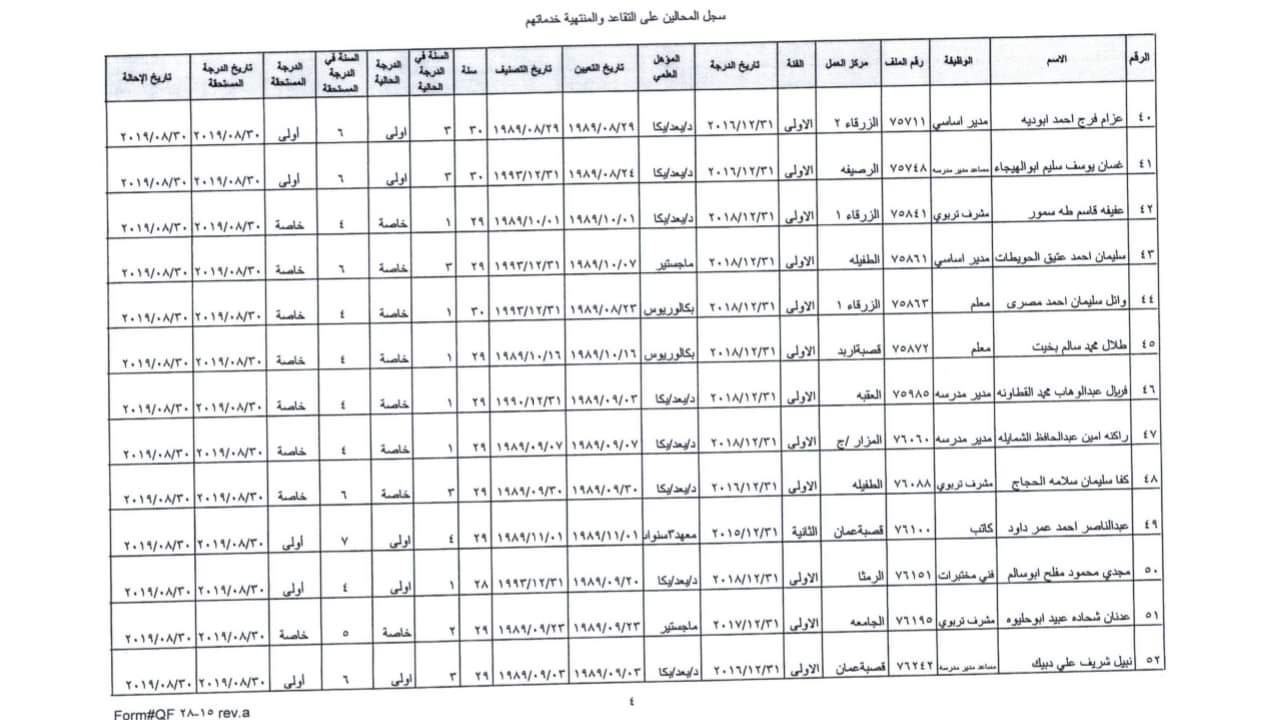 سجل المحالين على التقاعد والمنتهية خدماتهم
الرقم الاسم الوظيفة رقم الملف مركز العمل الفئة تاريخ الدرجة المؤهل العلمي تاريخ التعيين تاريخ التصنيف سنة السنة في الدرجة الحالية الدرجة الحالية السنة في الدرجة المستحقة الدرجة المستحقة تاريخ الدرجة المستحقة تاريخ الإحالة
٤٠ عزام فرج احمد ابوديه مدير اساسي ٧٥٧١١ الزرقاء ٢ الاولى ٢٠١٦/١٢/٣١ د/بعد/بكا ١٩٨٩/٠٨/٢٩ ١٩٨٩/٠٨/٢٩ ٣٠ ٣ اولى ٦ أولى ٢٠١٩/٠٨/٣٠ ٢٠١٩/٠٨/٣٠
٤١ غسان يوسف سليم ابوالهيجاء مساعد مدير مدرسه ٧٥٧٤٨ الرصيفه الاولى ٢٠١٦/١٢/٣١ د/بعد/بكا ١٩٨٩/٠٨/٢٤ ١٩٩٣/١٢/٣١ ٣٠ ٣ اولى ٦ أولى ٢٠١٩/٠٨/٣٠ ٢٠١٩/٠٨/٣٠
٤٢ عفيفه قاسم طه سمور مشرف تربوي ٧٥٨٤١ الزرقاء ١ الاولى ٢٠١٨/١٢/٣١ د/بعد/بكا ١٩٨٩/١٠/٠١ ١٩٨٩/١٠/٠١ ٢٩ ١ خاصة ٤ خاصة ٢٠١٩/٠٨/٣٠ ٢٠١٩/٠٨/٣٠
٤٣ سليمان احمد عتيق الحويطات مدير اساسي ٧٥٨٦١ الطفيله الاولى ٢٠١٨/١٢/٣١ ماجستير ١٩٨٩/١٠/٠٧ ١٩٩٣/١٢/٣١ ٢٩ ٣ خاصة ٦ خاصة ٢٠١٩/٠٨/٣٠ ٢٠١٩/٠٨/٣٠
٤٤ وائل سليمان احمد مصرى معلم ٧٥٨٦٣ الزرقاء ١ الاولى ٢٠١٨/١٢/٣١ بكالوريوس ١٩٨٩/٠٨/٢٣ ١٩٩٣/١٢/٣١ ٣٠ ١ خاصة ٤ خاصة ٢٠١٩/٠٨/٣٠ ٢٠١٩/٠٨/٣٠
٤٥ طلال محمد سالم بخيت معلم ٧٥٨٧٢ قصبةاربد الاولى ٢٠١٨/١٢/٣١ بكالوريوس ١٩٨٩/١٠/١٦ ١٩٨٩/١٠/١٦ ٢٩ ١ خاصة ٤ خاصة ٢٠١٩/٠٨/٣٠ ٢٠١٩/٠٨/٣٠
٤٦ فريال عبدالوهاب محمد القطاونه مدير مدرسه ٧٥٩٨٥ العقبه الاولى ٢٠١٨/١٢/٣١ د/بعد/بكا ١٩٨٩/٠٩/٠٣ ١٩٩٠/١٢/٣١ ٢٩ ١ خاصة ٤ خاصة ٢٠١٩/٠٨/٣٠ ٢٠١٩/٠٨/٣٠
٤٧ راكنه امين عبدالحافظ الشمايله مدير مدرسه ٧٦٠٦٠ المزار /ج الاولى ٢٠١٨/١٢/٣١ د/بعد/بكا ١٩٨٩/٠٩/٠٧ ١٩٨٩/٠٩/٠٧ ٢٩ ١ خاصة ٤ خاصة ٢٠١٩/٠٨/٣٠ ٢٠١٩/٠٨/٣٠
٤٨ كفا سليمان سلامه الحجاج مشرف تربوي ٧٦٠٨٨ الطفيله الاولى ٢٠١٦/١٢/٣١ د/بعد/بكا ١٩٨٩/٠٩/٣٠ ١٩٨٩/٠٩/٣٠ ٢٩ ٣ خاصة ٦ خاصة ٢٠١٩/٠٨/٣٠ ٢٠١٩/٠٨/٣٠
٤٩ عبدالناصر احمد عمر داود كاتب ٧٦١٠٠ قصبةعمان الثانية ٢٠١٥/١٢/٣١ معهد٣سنوات ١٩٨٩/١١/٠١ ١٩٨٩/١١/٠١ ٢٩ ٤ اولى ٧ أولى ٢٠١٩/٠٨/٣٠ ٢٠١٩/٠٨/٣٠
٥٠ مجدي محمود مفلح ابوسالم فني مختبرات ٧٦١٥١ الرمثا الاولى ٢٠١٨/١٢/٣١ د/بعد/بكا ١٩٨٩/٠٩/٢٠ ١٩٩٣/١٢/٣١ ٢٨ ١ اولى ٤ أولى ٢٠١٩/٠٨/٣٠ ٢٠١٩/٠٨/٣٠
٥١ عدنان شحاده عبيد ابوحليوه مشرف تربوي ٧٦١٩٥ الجامعه الاولى ٢٠١٧/١٢/٣١ ماجستير ١٩٨٩/٠٩/٢٣ ١٩٨٩/٠٩/٢٣ ٢٩ ٢ خاصة ٥ خاصة ٢٠١٩/٠٨/٣٠ ٢٠١٩/٠٨/٣٠
٥٢ نبيل شريف علي دبيك مساعد مدير مدرسه ٧٦٢٤٢ قصبةعمان الاولى ٢٠١٦/١٢/٣١ د/بعد/بكا ١٩٨٩/٠٩/٠٣ ١٩٨٩/٠٩/٠٣ ٢٩ ٣ اولى ٦ أولى ٢٠١٩/٠٨/٣٠ ٢٠١٩/٠٨/٣٠
٤
Form#QF ٢٨-١٥ rev.a